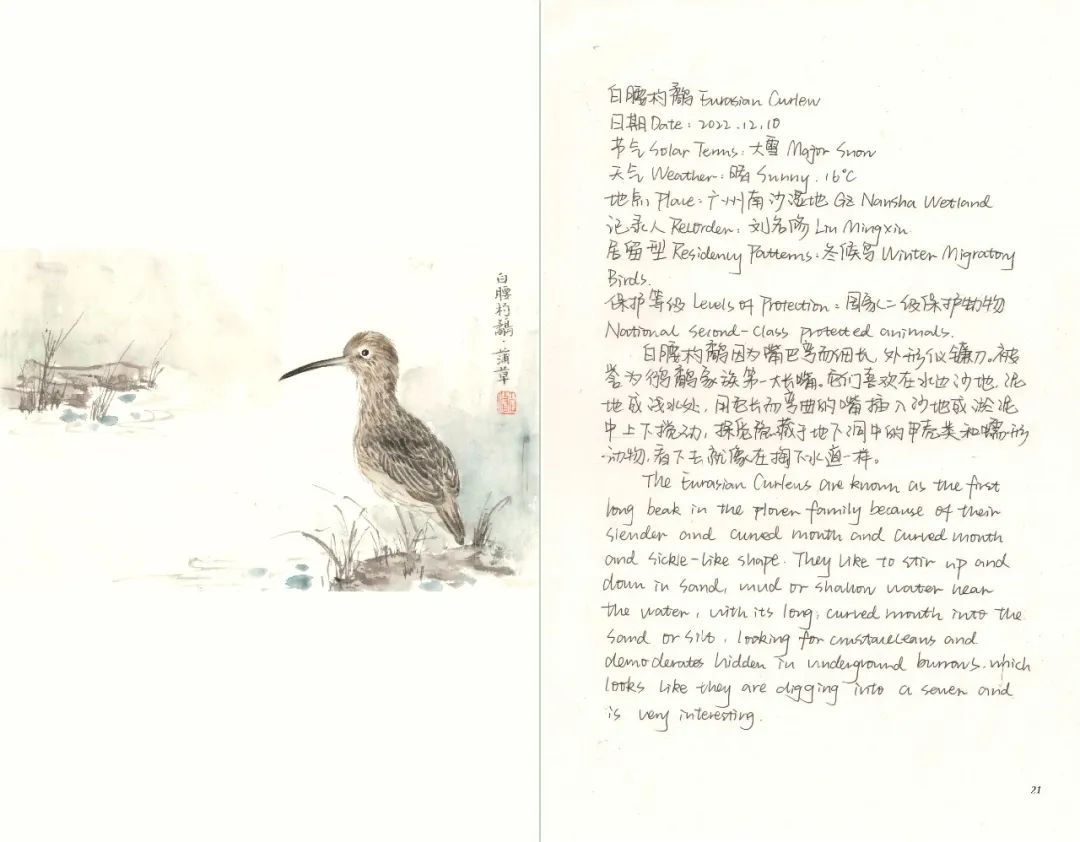 白腰杓鹬·蒲草
白腰杓鹬 Eurasian Curlew
日期 Date: 2022.12.10
节气 Solar Terms: 大雪 Major Snow
天气 Weather: 晴 Sunny. 16°C
地点 Place: 广州南沙湿地 GZ Nansha Wetland
记录人 Recorder: 刘名 Liu Mingxin
居留型 Residency Patterns: 冬候鸟 Winter Migratory
Birds.
保护等级 Levels of Protection: 国家二级保护动物
National second-class protected animals.
白腰杓鹬因为嘴巴弯而细长,外形似镰刀,被
誉为行鹬家族第一大长嘴。它们喜欢在水边沙地、泥
地或浅水处,用它长而弯曲的嘴插入沙地或淤泥
中上下搅动,探觅隐藏于地下洞中的甲壳类和蠕形
动物,看下去就像在掏下水道一样。
The Eurasian Curlews are known as the first
long beak in the plover family because of their
slender and curved month and curved month
and sickle-like shape. They like to stir up and
down in sand, mud or shallow water near
the water, with its long, curved mouth into the
sand or silt, looking for crustaceans and
demoderates hidden in underground burrows, which
looks like they are digging into a sewer and
is very interesting.
21